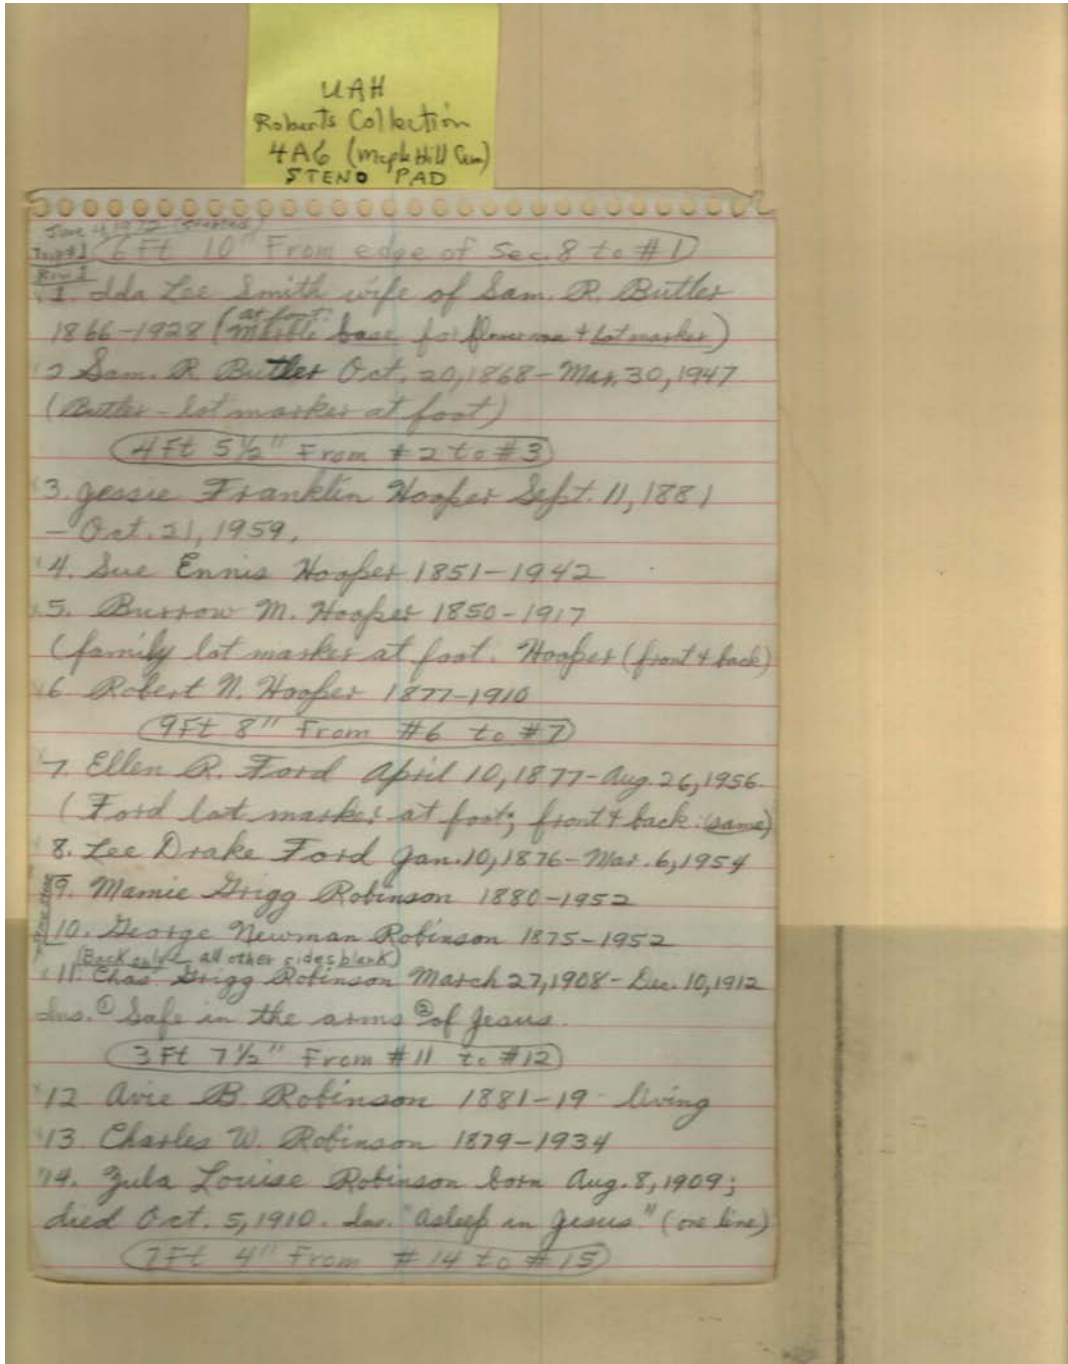 UAH
Roberts Collection
4A6 (Maple Hill Cem)
STENO PAD
June 4, 1972 (Started)
Trip #1 6 Ft 10" From edge of Sec. 8 to #1
Row 1
1. Ida Lee Smith wife of Sam. R. Butler
1866-1928 (at foot: Marble base for flower vase + Lot marker)
2 Sam. R Butler Oct. 20, 1868 - Mar. 30, 1947
(Butler - lot marker at foot)
4 Ft 5½" From #2 to #3
3. Jessie Franklin Hooper Sept. 11, 1881
- Oct. 21, 1959.
4. Sue Ennis Hooper 1851-1942
5. Burrow M. Hooper 1850-1917
(family lot marker at foot. Hooper (front + back)
6 Robert N. Hooper 1877-1910
9 Ft 8" From #6 to #7
7. Ellen R. Ford April 10, 1877 - Aug. 26, 1956.
(Ford lot marker at foot; front + back same)
8. Lee Drake Ford Jan. 10, 1876 - Mar. 6, 1954
9. Mamie Grigg Robinson 1880-1952
10. George Newman Robinson 1875-1952
(Back only - all other sides blank)
11. Chas Grigg Robinson March 27, 1908 - Dec. 10, 1912
Ins. ① Safe in the arms ② of Jesus.
3 Ft 7½" From #11 to #12
12 Avie B Robinson 1881-19 - living
13. Charles W. Robinson 1879-1934
14. Zula Louise Robinson born Aug. 8, 1909;
died Oct. 5, 1910. Ins. "Asleep in Jesus" (one line)
7 Ft 4" From #14 to #15